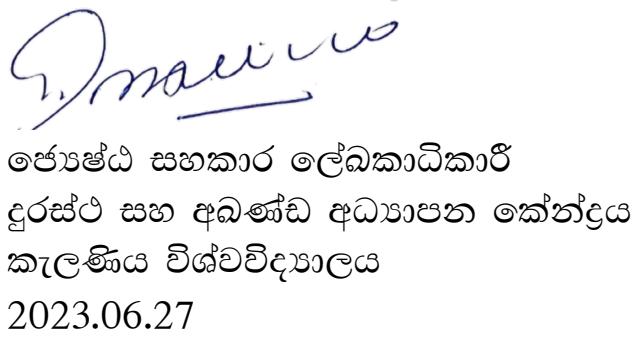 ජ්‍යෙෂ්ඨ සහකාර ලේඛකාධිකාරී
දුරස්ථ සහ අඛණ්ඩ අධ්‍යාපන කේන්ද්‍රය
කැලණිය විශ්වවිද්‍යාලය
2023.06.27